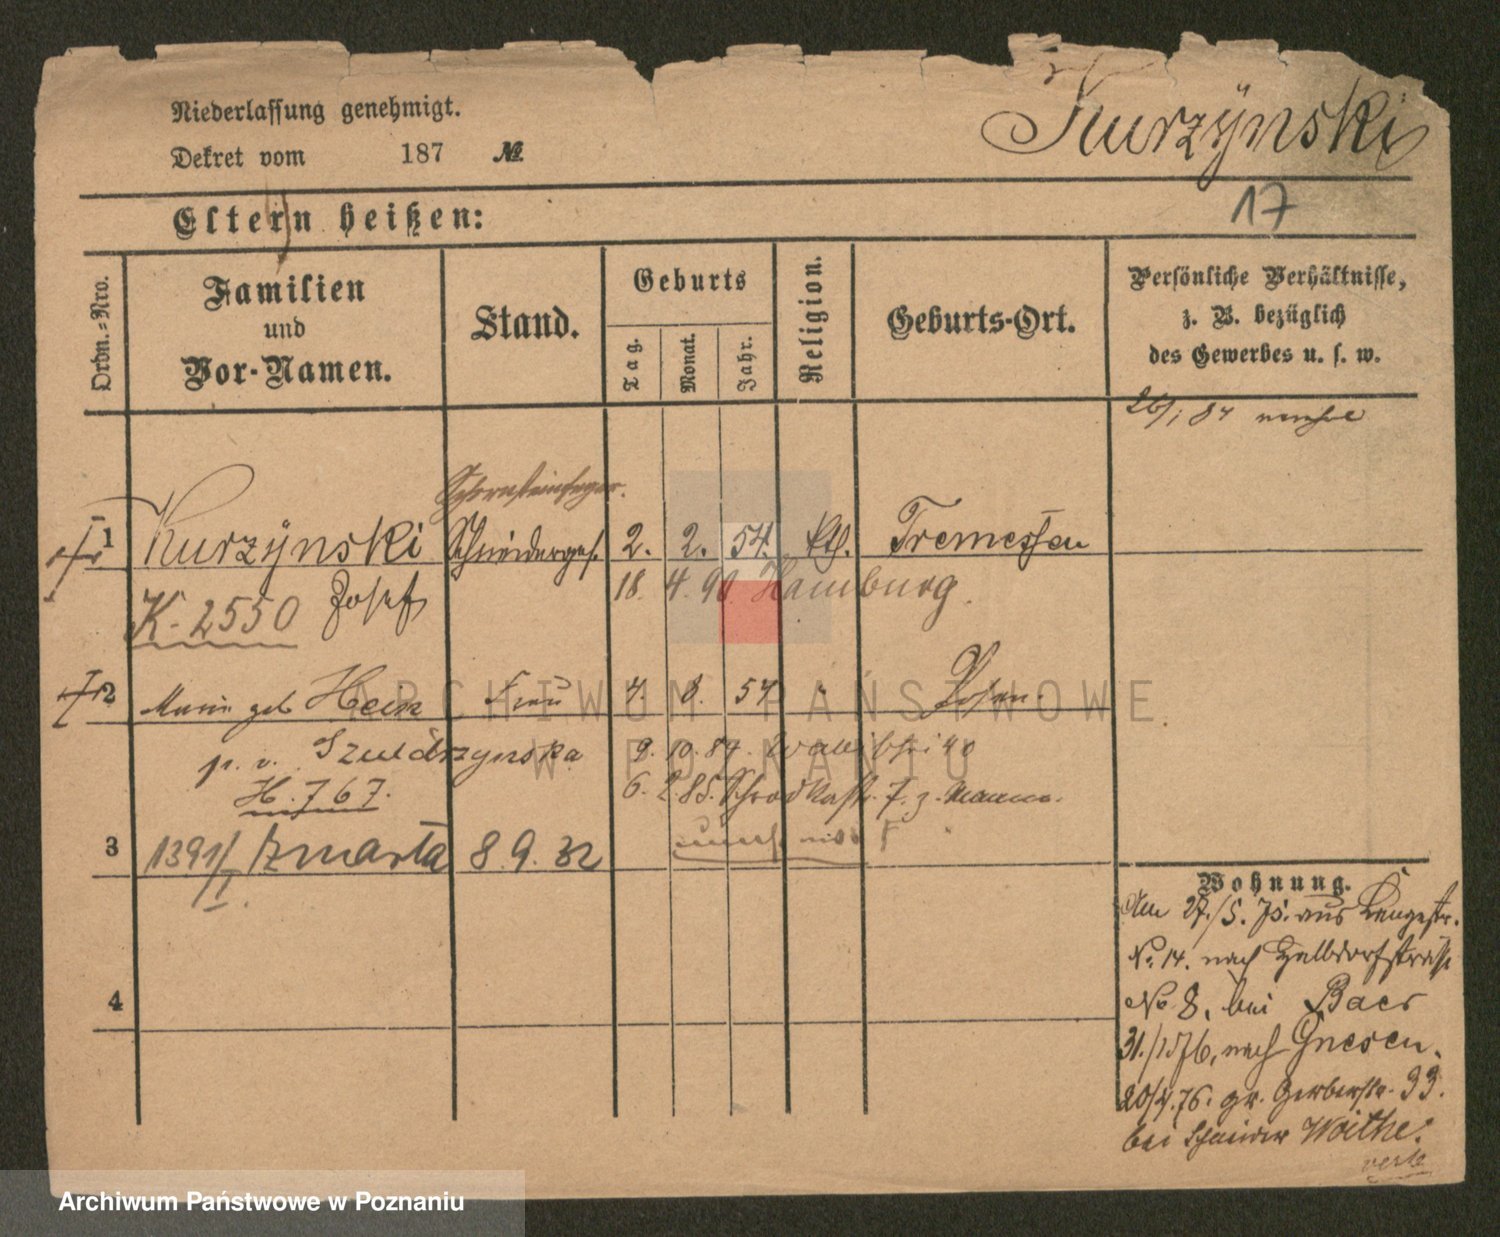 Niederlassung genehmigt.
Dekret vom 187 №
Kurzÿnski
17
Eltern heißen:
Ordn.-Nro.
Familien
und
Vor-Namen.
Stand.
Geburts
Tag.
Monat.
Jahr.
Religion.
Geburts-Ort.
Persönliche Verhältnisse,
z. B. bezüglich
des Gewerbes u. s. w.
26/1 84
Schornsteinfeger.
1 Kurzÿnski Schneiderges. 2. 2. 54. kth. Tremessen
Josef 18. 4. 90. Hamburg.
K-2550
2 Marie geb Heck Frau 4. 8. 54 " Posen
p. v. Szułdrzynska 9. 10. 84. Wallischei 40
H. 767. 6. 2. 85. Schrodkastr. 7. z. Manne.
3 1391/I zmarła 8. 9. 32
4
Wohnung.
Am 27./5. 75. aus Langestr.
No. 14. nach Halbdorfstraße
No 8. bei Baer
31./1 76, nach Gnesen.
20/4. 76. gr. Gerberstr. 33.
bei Schneider Woithe.
verh
ARCHIWUM PAŃSTWOWE
W POZNANIU
Archiwum Państwowe w Poznaniu